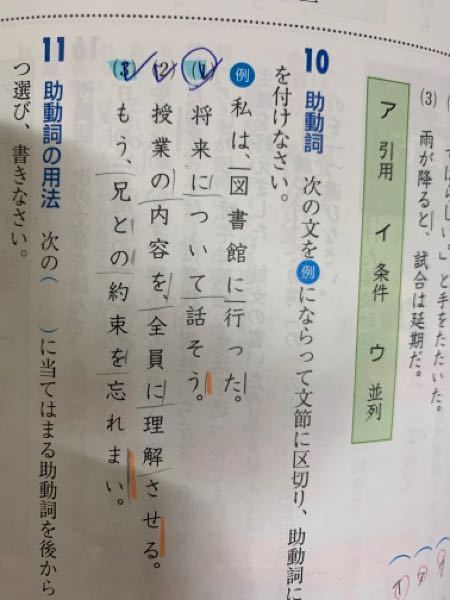 (3)
雨が降ると、試合は延期だ。
」と手をたたいた。
ア 引用 イ 条件 ウ 並列
10 助動詞 次の文を例にならって文節に区切り、助動詞に
を付けなさい。
例 私は、図書館に行った。
(1) 将来について話そう。
(2) 授業の内容を、全員に理解させる。
(3) もう、兄との約束を忘れまい。
11 助動詞の用法 次の( )に当てはまる助動詞を後から
つ選び、書きなさい。